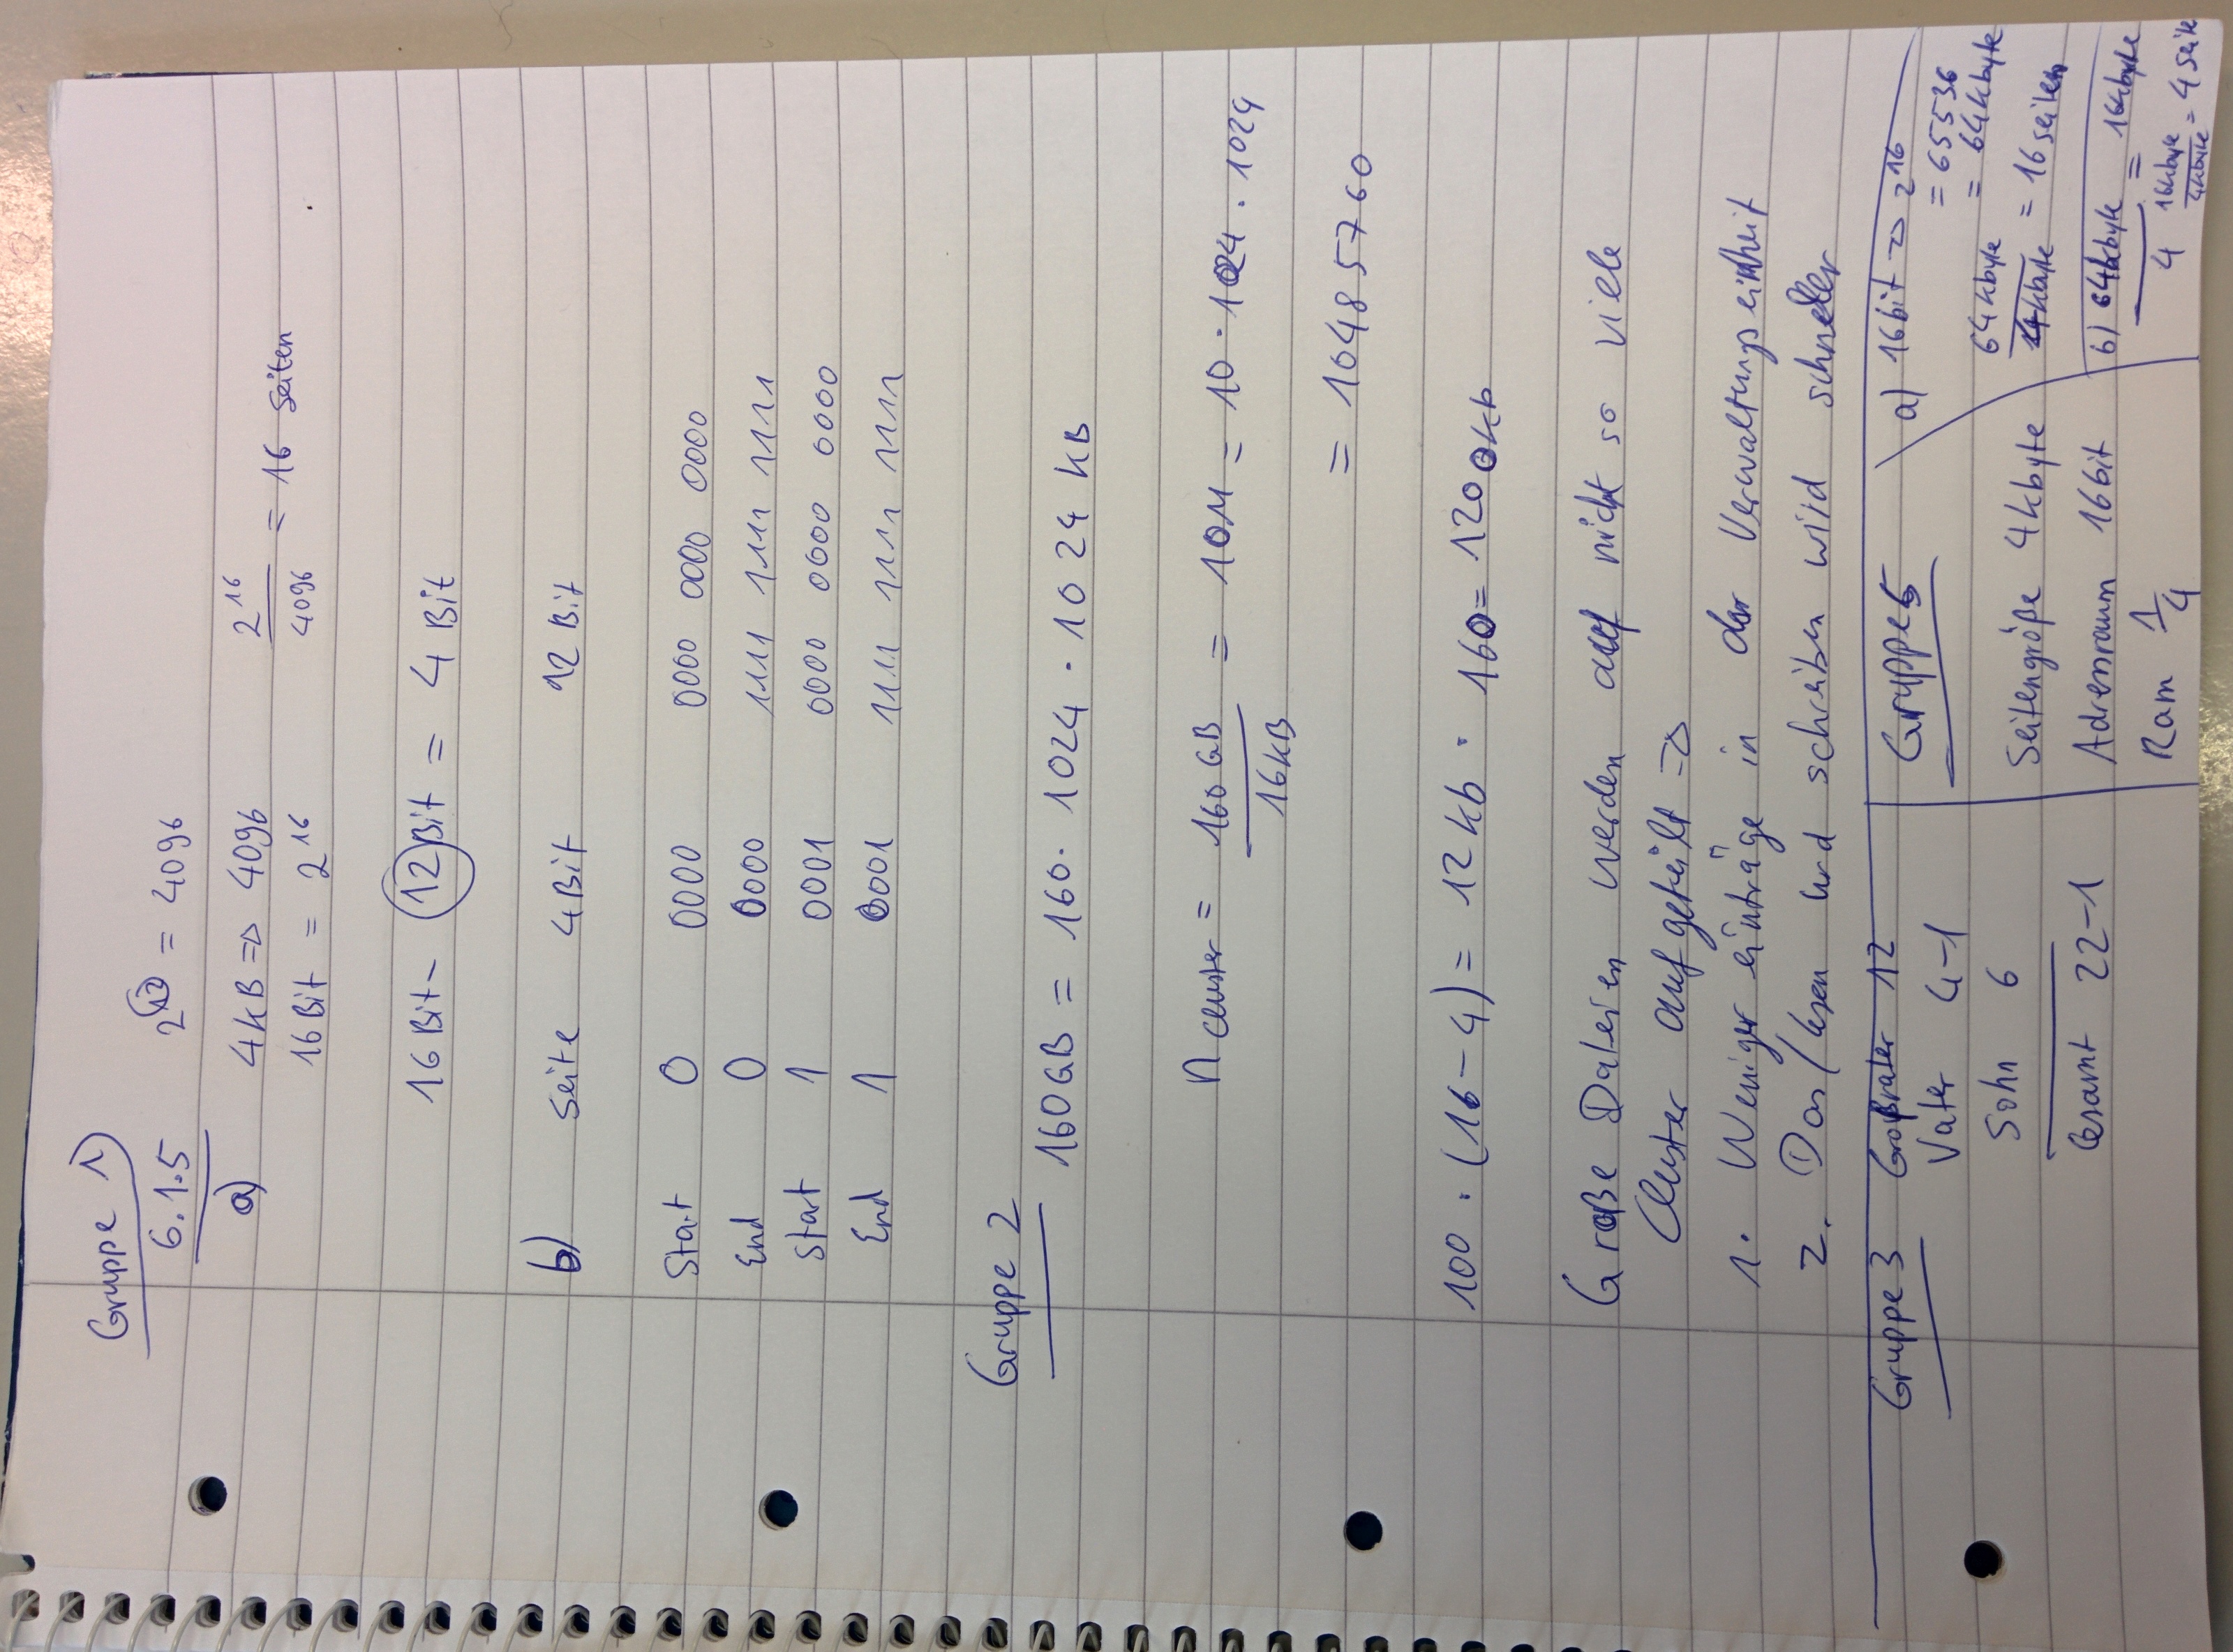 Gruppe 1)
6.1.5 2^12 = 4096
a) 4kB => 4096 2^16/4096 = 16 Seiten
16Bit = 2^16
16Bit - 12Bit = 4 Bit
b) Seite 4Bit 12 Bit
Start 0 0000 0000 0000 0000
End 0 0000 1111 1111 1111
Start 1 0001 0000 0000 0000
End 1 0001 1111 1111 1111
Gruppe 2
160GB = 160 · 1024 · 1024 kB
n Cluster = 160GB/16kB = 10M = 10 · 1024 · 1024
= 10485760
100 · (16-4) = 12kb · 160 = 1200kb
Große Dateien werden auf nicht so viele
Cluster aufgeteilt =>
1. Weniger einträge in der Verwaltungseinheit
2. Das lesen und schreiben wird schneller
Gruppe 3 Großvater 12
Vater 4-1
Sohn 6
Gesamt 22-1
Gruppe 5
Seitengröße 4kbyte
Adressraum 16bit
Ram 1/4
a) 16bit => 2^16
= 65536
= 64kbyte
64kbyte/4kbyte = 16 seiten
b) 64kbyte/4 = 16kbyte
16kbyte/4kbyte = 4 Seite